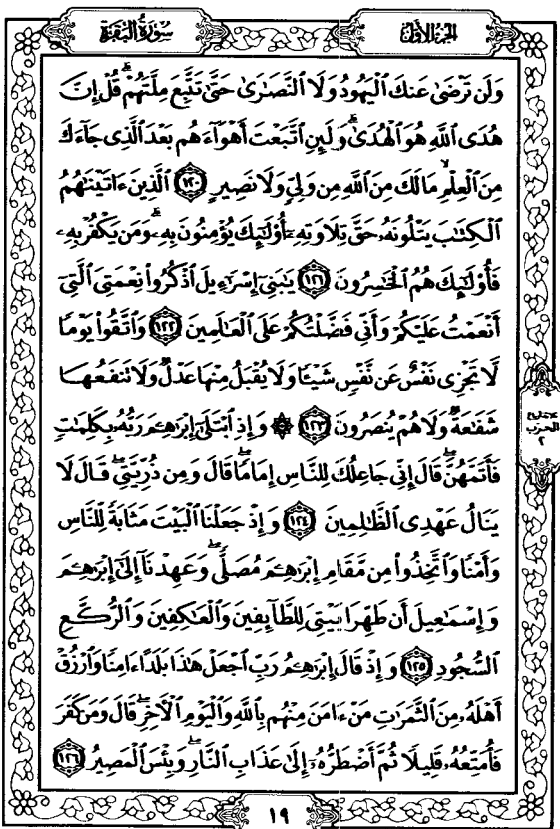 الجزء الأول
سورة البقرة
وَلَن تَرْضَىٰ عَنكَ ٱلْيَهُودُ وَلَا ٱلنَّصَٰرَىٰ حَتَّىٰ تَتَّبِعَ مِلَّتَهُمْ ۗ قُلْ إِنَّ
هُدَى ٱللَّهِ هُوَ ٱلْهُدَىٰ ۗ وَلَئِنِ ٱتَّبَعْتَ أَهْوَآءَهُم بَعْدَ ٱلَّذِى جَآءَكَ
مِنَ ٱلْعِلْمِ ۙ مَا لَكَ مِنَ ٱللَّهِ مِن وَلِىٍّ وَلَا نَصِيرٍ ﴿١٢٠﴾ ٱلَّذِينَ ءَاتَيْنَٰهُمُ
ٱلْكِتَٰبَ يَتْلُونَهُۥ حَقَّ تِلَاوَتِهِۦٓ أُو۟لَٰٓئِكَ يُؤْمِنُونَ بِهِۦ ۗ وَمَن يَكْفُرْ بِهِۦ
فَأُو۟لَٰٓئِكَ هُمُ ٱلْخَٰسِرُونَ ﴿١٢١﴾ يَٰبَنِىٓ إِسْرَٰٓءِيلَ ٱذْكُرُوا۟ نِعْمَتِىَ ٱلَّتِىٓ
أَنْعَمْتُ عَلَيْكُمْ وَأَنِّى فَضَّلْتُكُمْ عَلَى ٱلْعَٰلَمِينَ ﴿١٢٢﴾ وَٱتَّقُوا۟ يَوْمًا
لَّا تَجْزِى نَفْسٌ عَن نَّفْسٍ شَيْـًٔا وَلَا يُقْبَلُ مِنْهَا عَدْلٌ وَلَا تَنفَعُهَا
شَفَٰعَةٌ وَلَا هُمْ يُنصَرُونَ ﴿١٢٣﴾ ۞ وَإِذِ ٱبْتَلَىٰٓ إِبْرَٰهِۦمَ رَبُّهُۥ بِكَلِمَٰتٍ
فَأَتَمَّهُنَّ ۖ قَالَ إِنِّى جَاعِلُكَ لِلنَّاسِ إِمَامًا ۖ قَالَ وَمِن ذُرِّيَّتِى ۖ قَالَ لَا
يَنَالُ عَهْدِى ٱلظَّٰلِمِينَ ﴿١٢٤﴾ وَإِذْ جَعَلْنَا ٱلْبَيْتَ مَثَابَةً لِّلنَّاسِ
وَأَمْنًا وَٱتَّخِذُوا۟ مِن مَّقَامِ إِبْرَٰهِۦمَ مُصَلًّى ۖ وَعَهِدْنَآ إِلَىٰٓ إِبْرَٰهِۦمَ
وَإِسْمَٰعِيلَ أَن طَهِّرَا بَيْتِىَ لِلطَّآئِفِينَ وَٱلْعَٰكِفِينَ وَٱلرُّكَّعِ
ٱلسُّجُودِ ﴿١٢٥﴾ وَإِذْ قَالَ إِبْرَٰهِۦمُ رَبِّ ٱجْعَلْ هَٰذَا بَلَدًا ءَامِنًا وَٱرْزُقْ
أَهْلَهُۥ مِنَ ٱلثَّمَرَٰتِ مَنْ ءَامَنَ مِنْهُم بِٱللَّهِ وَٱلْيَوْمِ ٱلْءَاخِرِ ۖ قَالَ وَمَن كَفَرَ
فَأُمَتِّعُهُۥ قَلِيلًا ثُمَّ أَضْطَرُّهُۥٓ إِلَىٰ عَذَابِ ٱلنَّارِ ۖ وَبِئْسَ ٱلْمَصِيرُ ﴿١٢٦﴾
الحزب
٢
١٩